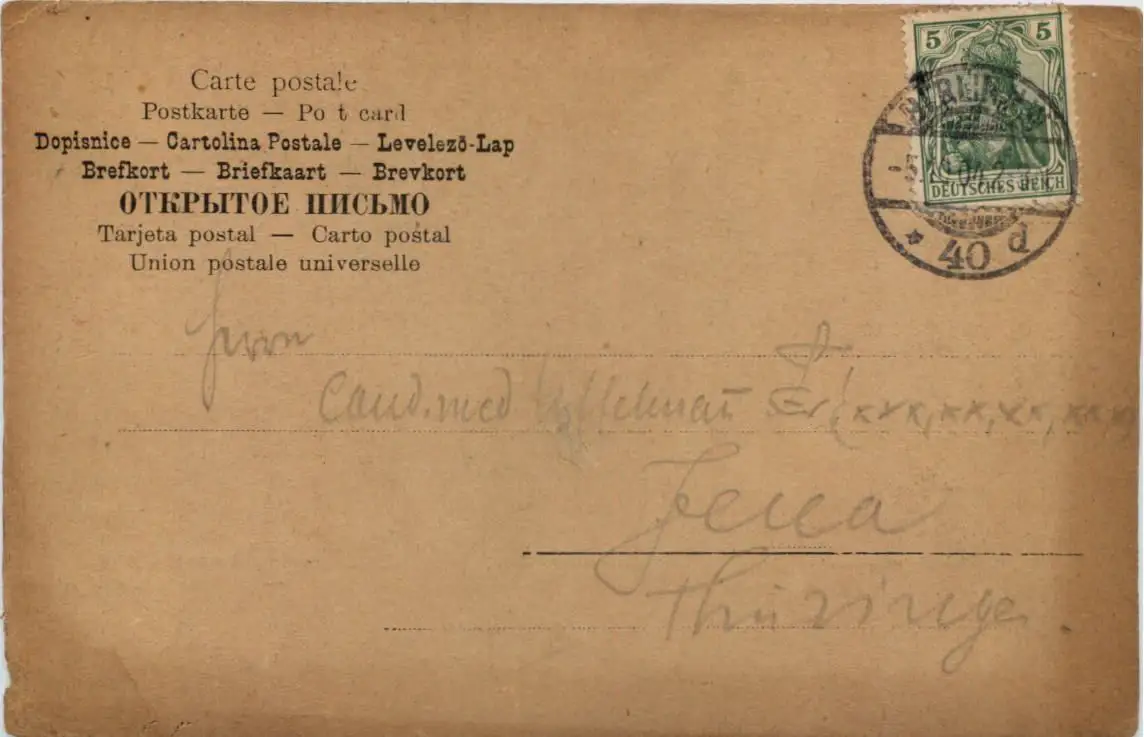 Carte postale
Postkarte — Po t card
Dopisnice — Cartolina Postale — Levelező-Lap
Brefkort — Briefkaart — Brevkort
ОТКРЫТОЕ ПИСЬМО
Tarjeta postal — Carto postal
Union postale universelle
5 5
DEUTSCHES REICH
BERLIN
* 40 d
Herrn
Cand. med
Jena
Thüringen